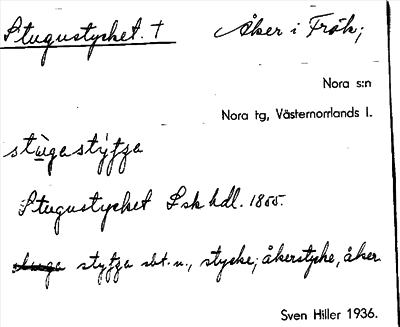 Stugustycket. † Åker i Frök;
Nora s:n
Nora tg, Västernorrlands l.
stùgastýfza
Stugustycket Lsk hdl. 1855.
stuga styfza sbt. n., stycke; åkerstycke, åker.
Sven Hiller 1936.